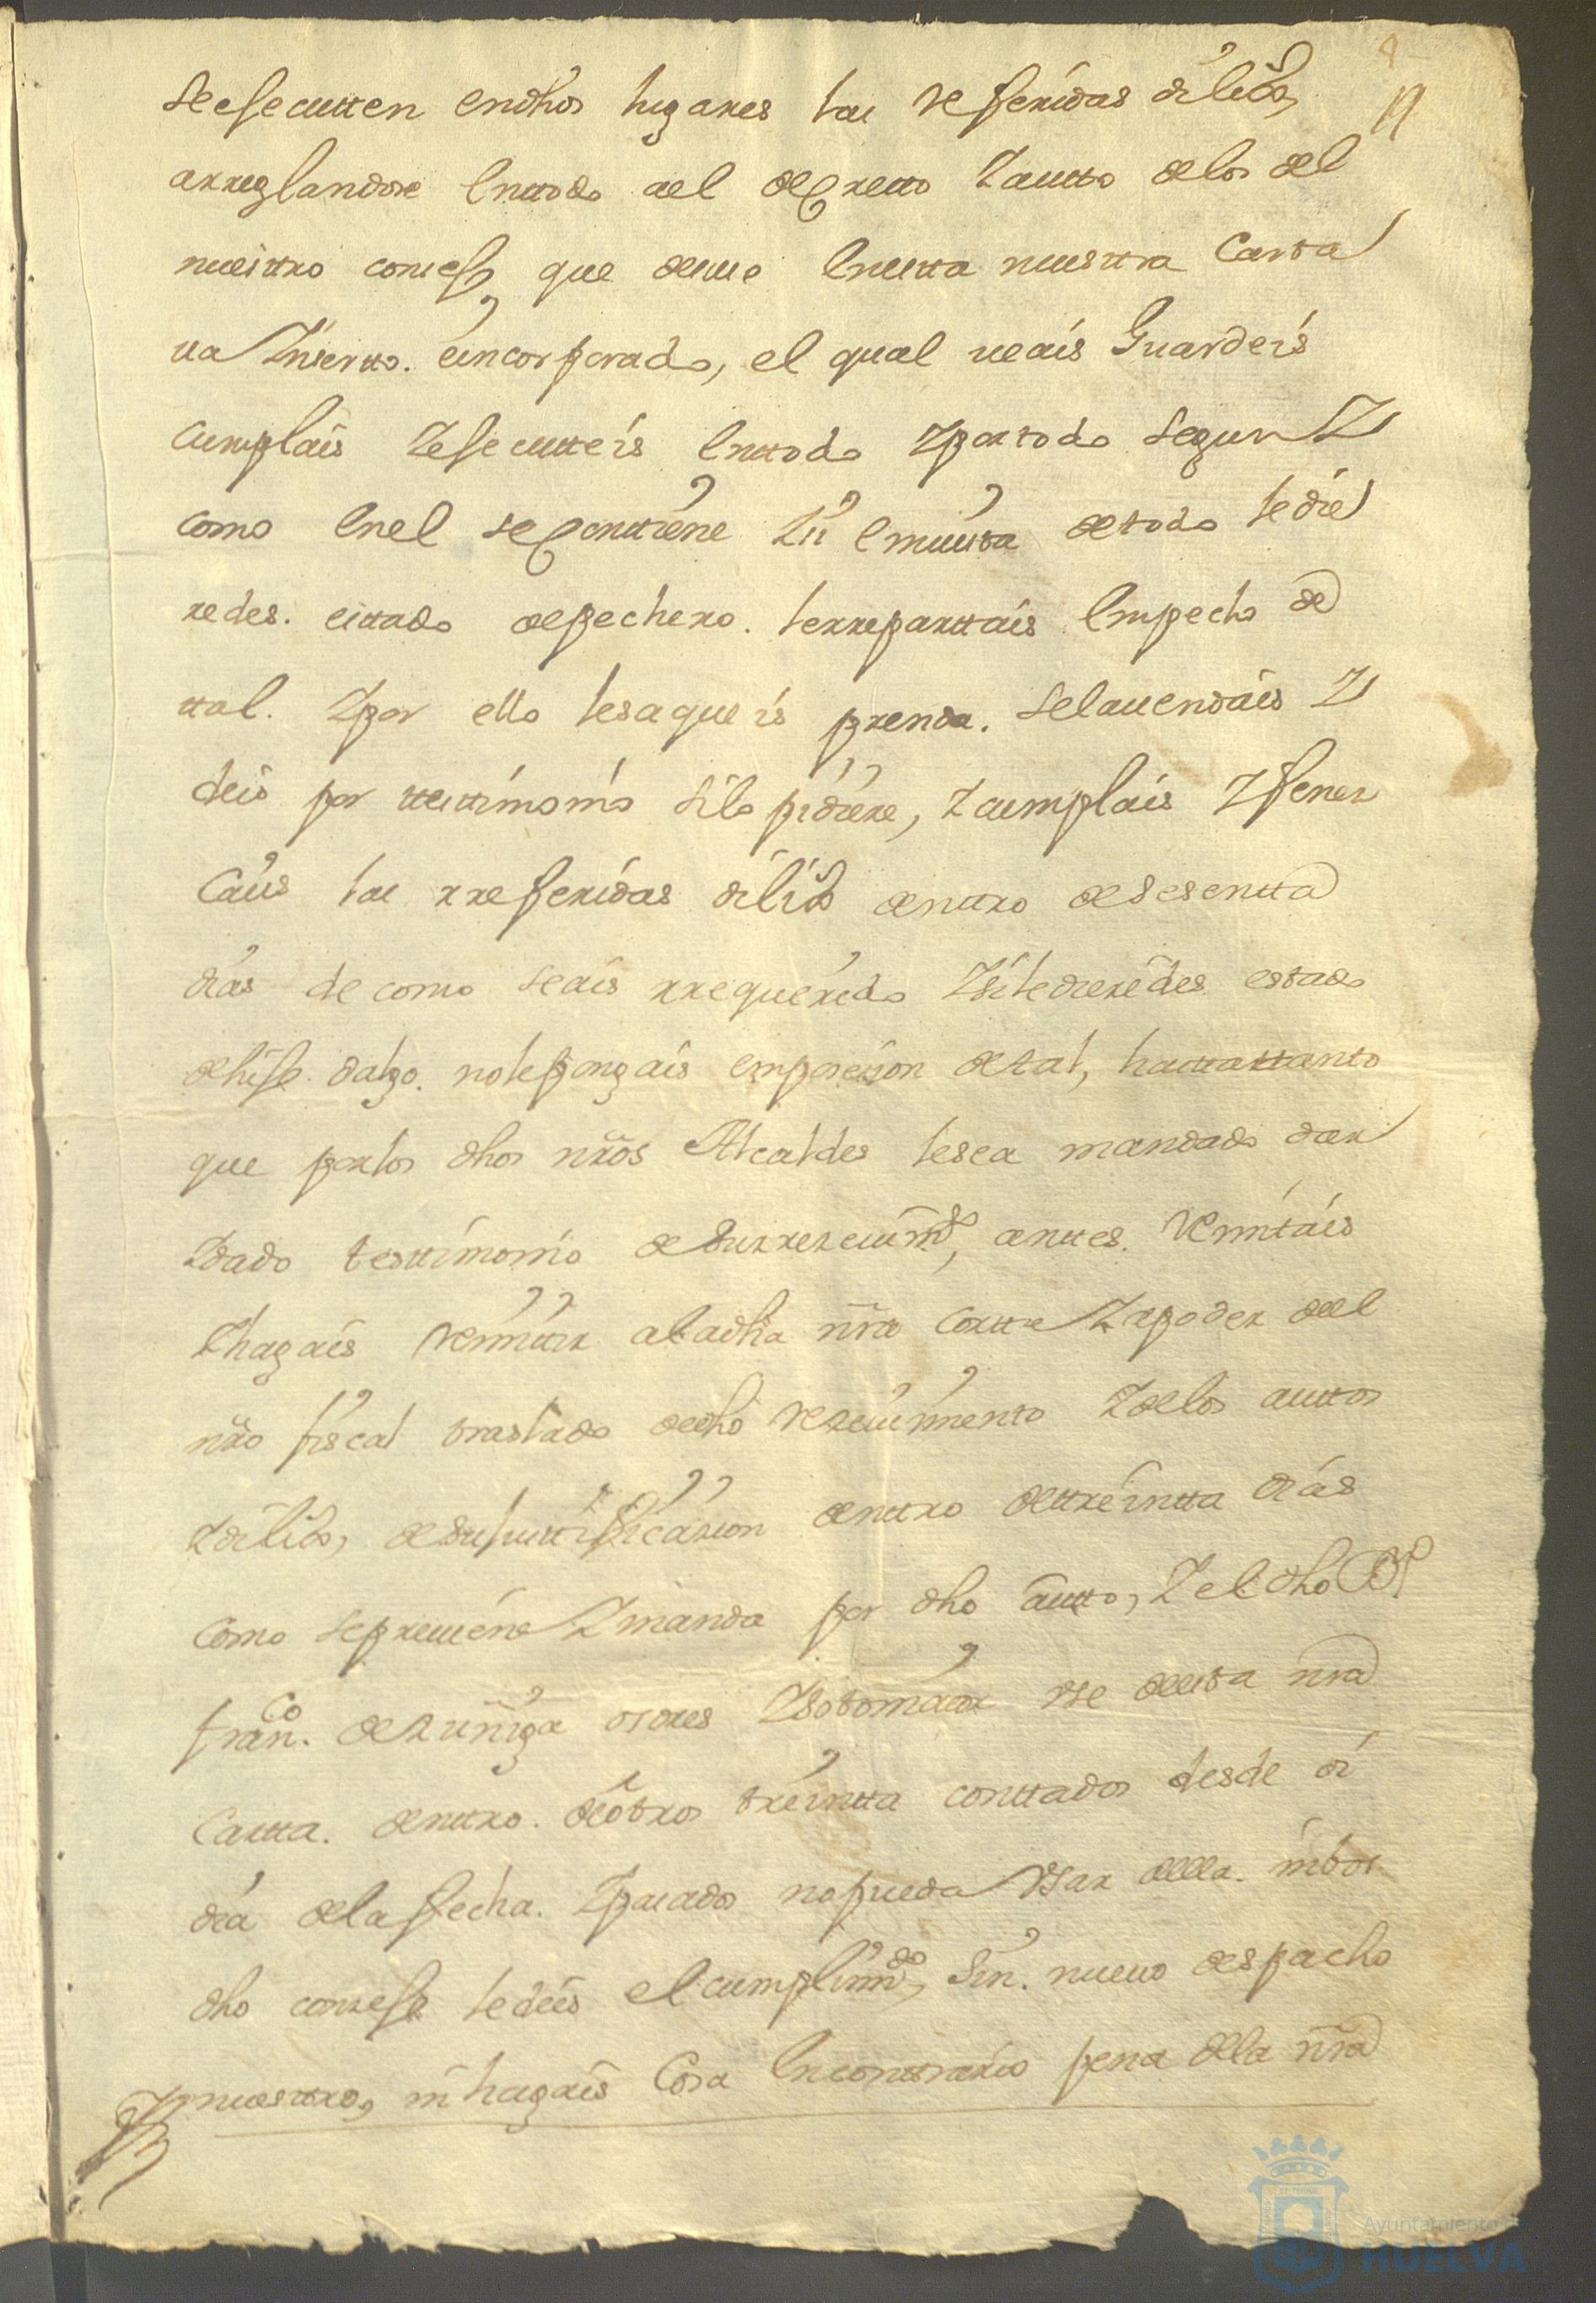 8
19
Seesecutten endhos lugares las referidas dilixs,
arreglandose Enttodo ael decretto Yautto delos del
nuesttro consejo, que deuue Enestta nuesttra Cartta
ua Ynsertto. eincorporado, el qual ueais Guardeis
cumplais Yesecutteis Enttodo Yportodo Segun Y
como Enel seConttiene Ysi Enuista detodo ledie
redes. esttado depechero. lerreparttais Empecho de
ttal. Ypor ello lesaqueis prenda. selauendais Y
deis por ttesttimonio silo pidiere, Ycumplais Yfenes
cais las rreferidas dilixs denttro desesentta
dias de como seais rrequerido Ysiledieredes estado
dehijo. dalgo. nolepongais enposesion detal, hasttattanto
que porlos dhos nros Alcaldes lesea mandado dar
Ydado testtimonio desurreseuimto, anttes. Remitais
Yhagais Remitir aladha nra Cortte Yapoder del
nro fiscal traslado dedho Reseuimiento Ydelos auttos
Ydilixs, desujusttificasion denttro dettreintta dias
como sepreuiene Ymanda por dho autto, Yel dho Dn
franco. deZuñiga osores Ysotomaior use destta nra
Cartta. denttro. deotros treintta conttados desde oi
dia delafecha. Ypasados nopueda Usar della. nibos
dho consejo ledeis el cumplimto, Sin. nueuo despacho
Ynuesttro, ni hagais Cosa Encontrario pena dela nra
Ayuntamiento de
HUELVA